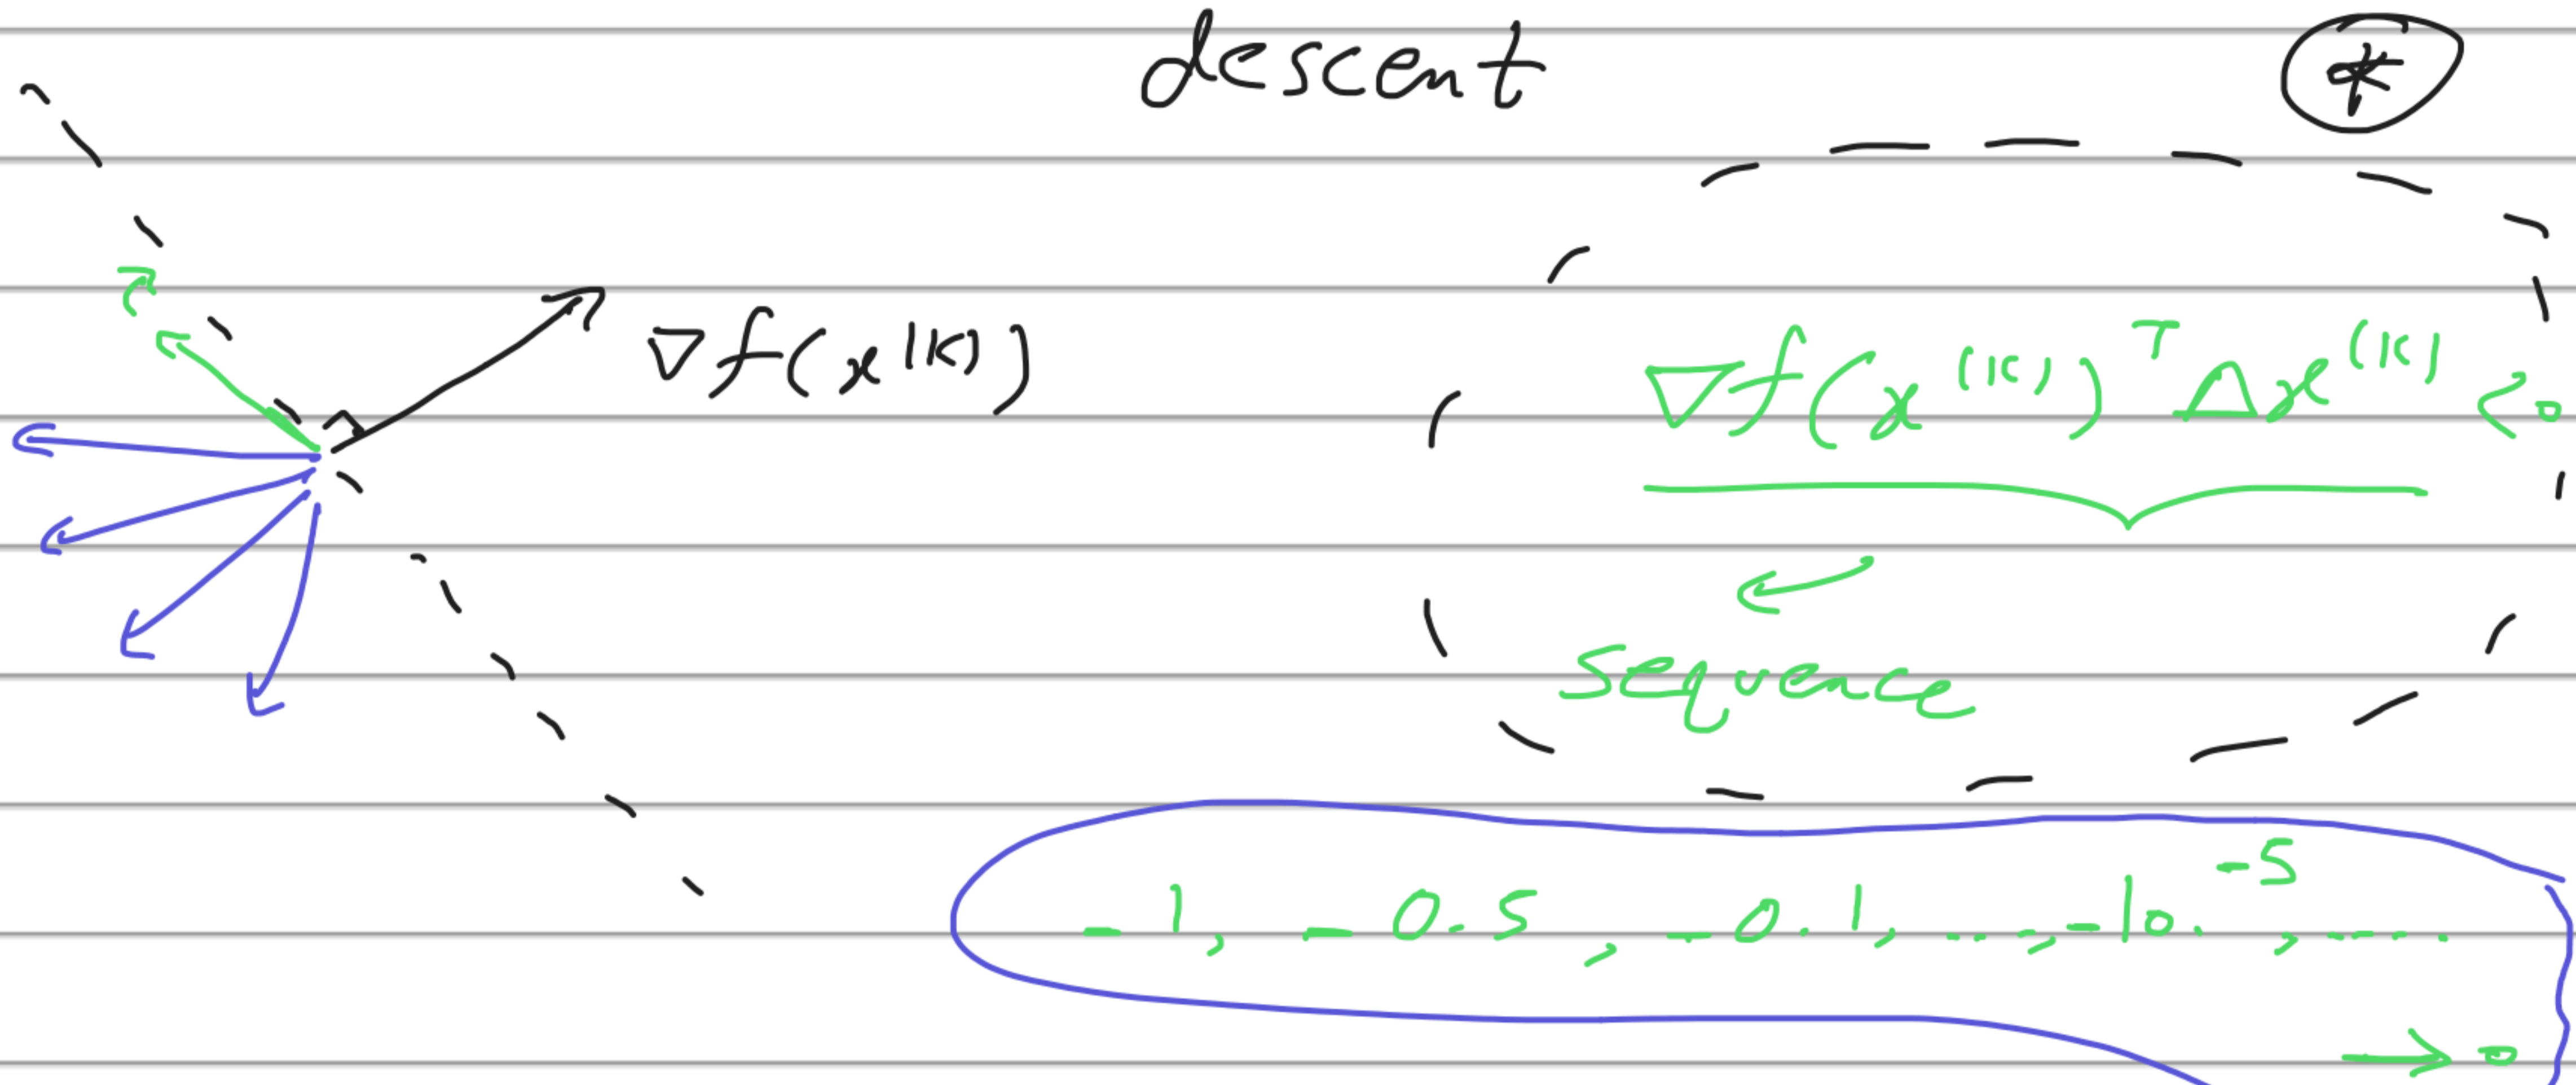 descent
*
∇f(x^(k))
∇f(x^(k))^T Δx^(k) < 0
sequence
-1, -0.5, -0.1, ..., -10^-5, ....
→ 0